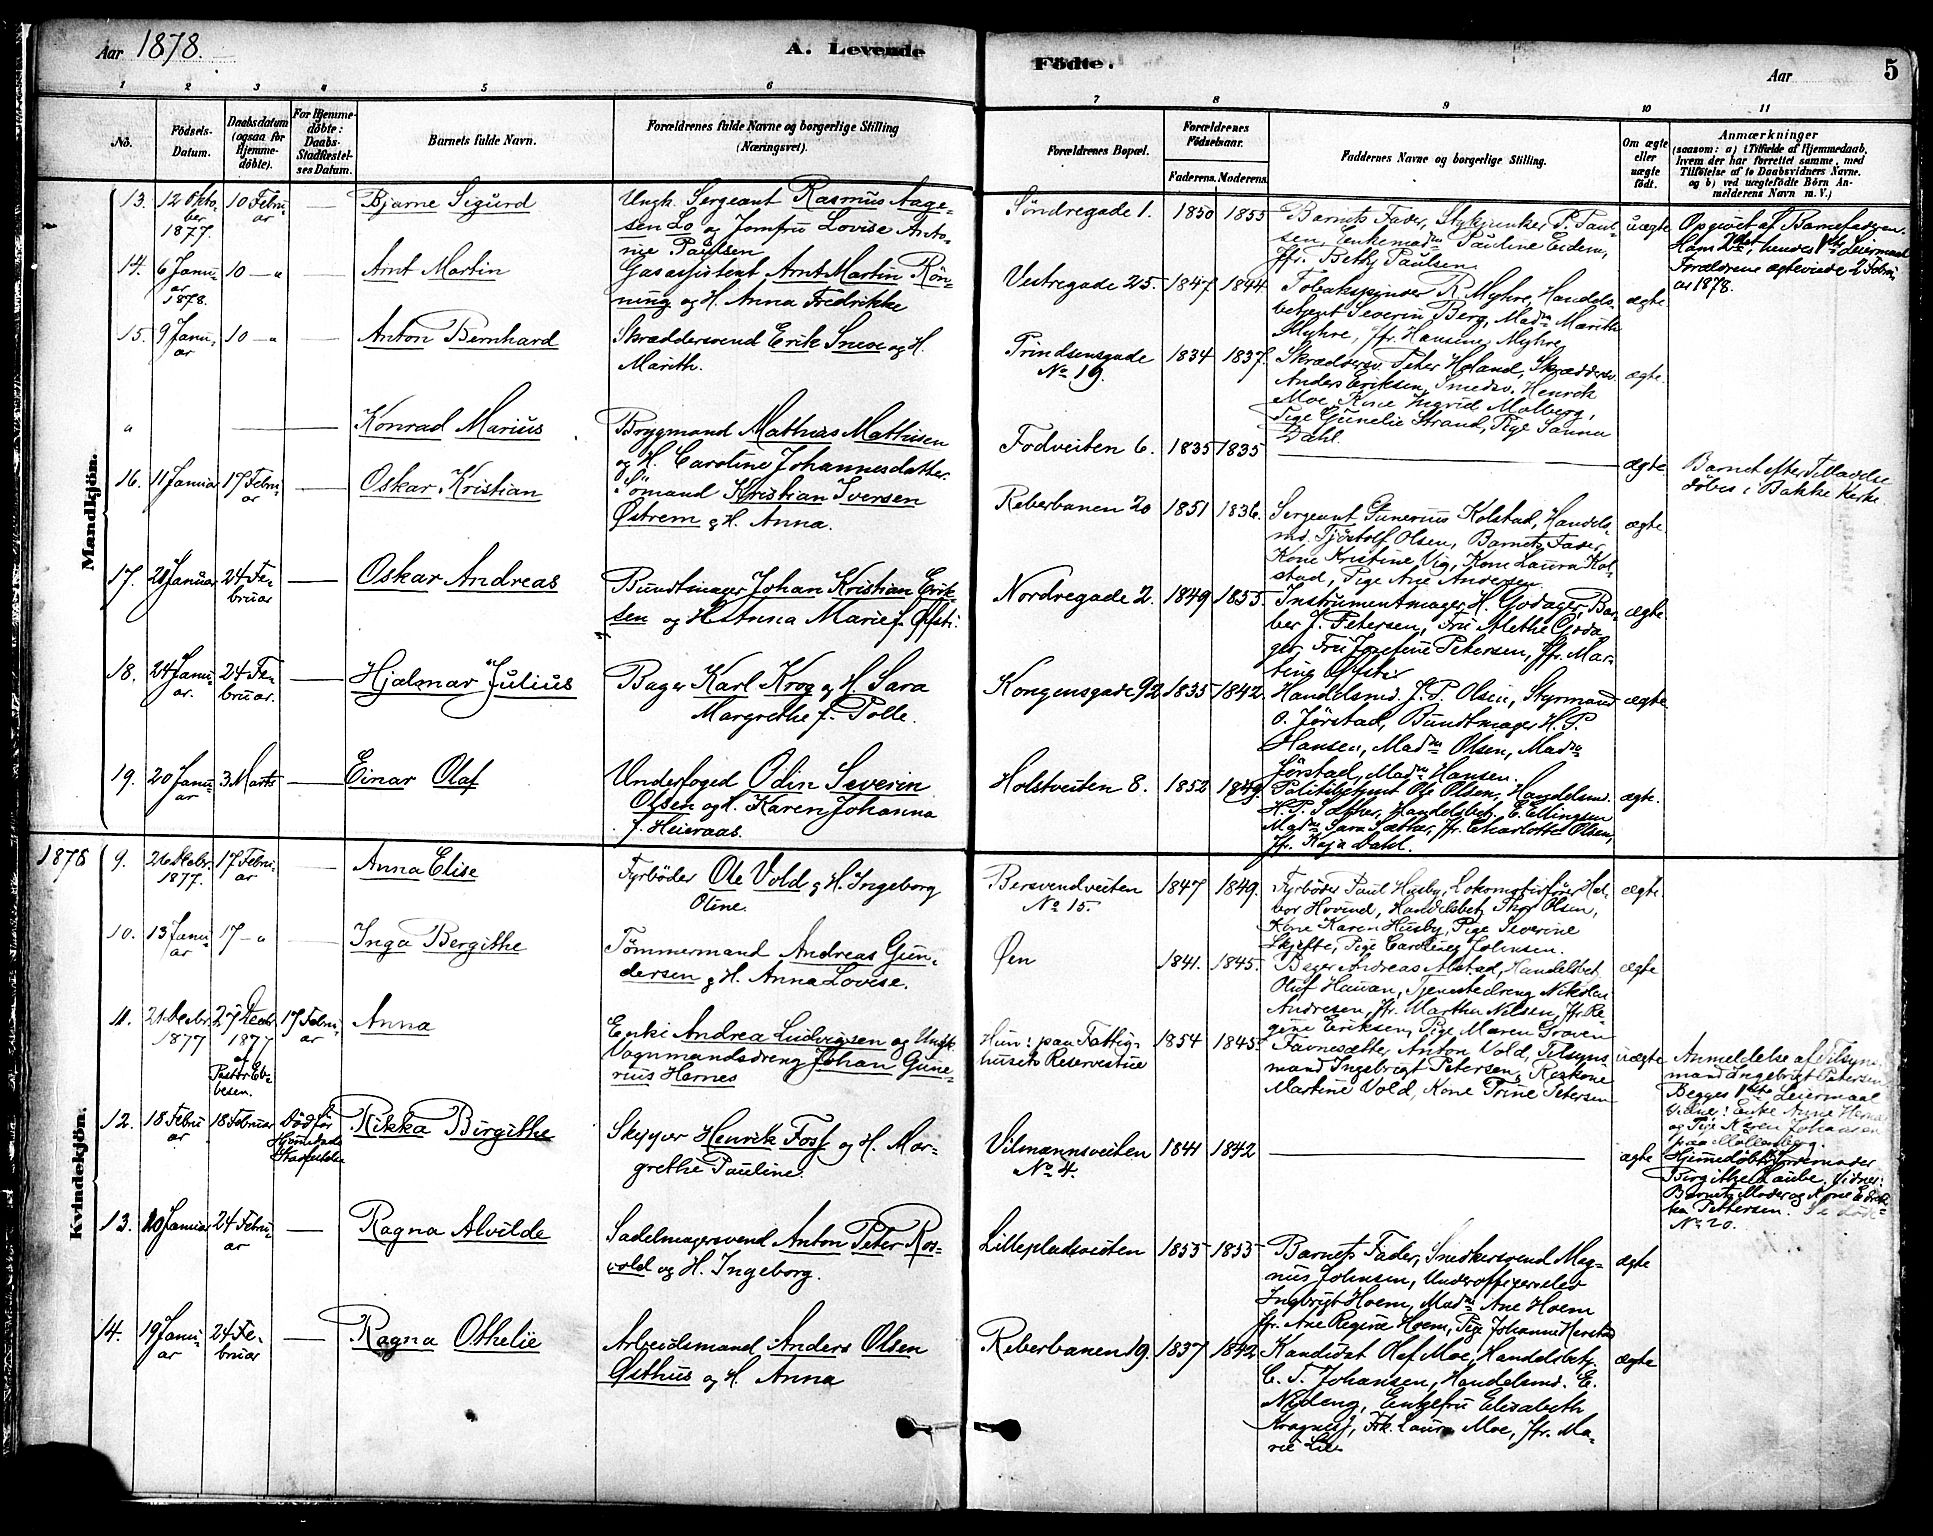 Aar 1878.
A. Levende
Födte.
Aar
5
1 2 3 4 5 6 7 8 9 10 11
No.
Födsels-
Datum.
Daabsdatum
(ogsaa for
Hjemme-
döbte).
For Hjemme-
döbte:
Daabs-
Stadfæstel-
ses Datum.
Barnets fulde Navn.
Forældrenes fulde Navne og borgerlige Stilling
(Næringsvei).
Forældrenes Bopæl.
Forældrenes
Födselsaar.
Faderens. Moderens.
Faddernes Navne og borgerlige Stilling.
Om ægte
eller
uægte
födt.
Anmærkninger
(saasom: a) i Tilfælde af Hjemmedaab,
hvem der har forrettet samme, med
Tilföielse af to Daabsvidners Navne.
og b) ved uægtefödte Börn An-
melderens Navn m. V.)
Mandkjön.
13. 12 Okto-
ber
1877.
10 Febru-
ar
Bjarne Sigurd
Ungk. Sergeant Rasmus Aage-
sen Lo og Jomfru Lovise Anto-
nie Paulsen
Söndregade 1. 1850 1855
Barnets Fader, Stykjunker P. Paul-
sen, Enkemadm Pauline Eidem,
Jfr. Bethy Paulsen
uægte
Opgivet af Barnefaderen.
Hans 2det, hendes 1ste Leiermaal
Forældrene ægteviede 2 Febru-
ar 1878.
14. 6 Janu-
ar
1878.
10 — "
Arnt Martin
Gasassistent Arnt Martin Rön-
ning og H. Anna Fredrikke
Vestregade 25. 1847 1844
Tobakspinder R. Myhre, Handels-
betjent Severin Berg, Madm Marith
Myhre, Jfr. Hansine Myhre
ægte
15. 9 Janu-
ar
10 — "
Anton Bernhard
Skræddersvend Erik Snese og H.
Marith.
Prindsensgade
No 19.
1834 1837.
Skræddersv. Peter Holand, Skræddersv.
Anders Eriksen, Smedsv. Henrik
Moe, Kone Ingrid Molberg,
Pige Gunelie Strand, Pige Sanna
Dahl.
ægte.
"
Konrad Marius
Brygmand Mathias Mathisen
og H. Caroline Johannesdatter.
Fodveiten 6. 1835 1835
ægte
Barnet efter Tilladelse
döbes i Bakke Kirke.
16. 11 Januar 17 Febru-
ar
Oskar Kristian
Sömand Kristian Iversen
Østrem og H. Anna.
Reberbanen 20 1851 1836.
Sergeant Gunerius Kolstad, Handels-
md. Tjöstolf Olsen, Barnets Fader,
Kone Kristine Vig, Kone Laura Kol-
stad, Pige Ane Andersen
ægte
17. 28 Januar 24 Fe-
bruar
Oskar Andreas
Bundtmager Johan Kristian Erik-
sen og H. Anna Marie f. Øfsti.
Nordregade 2. 1849 1855.
Instrumentmager H. Godager, Bar-
ber J. Petersen, Fru Alethe Goda-
ger, Fru Josefine Petersen, Jfr. Mar-
tine Øfsti.
ægte.
18. 24 Janu-
ar.
24 Fe-
bruar.
Hjalmar Julius
Bager Karl Krog og H. Sara
Margrethe f. Polle.
Kongensgade 92 1835 1842.
Handelsmd. J. P. Olsen, Styrmand
O. Jörstad, Bundtmager H. P.
Hansen, Madm Olsen, Madm
Jörstad, Madm Hansen.
ægte
19. 20 Janu-
ar
3 Marts
Einar Olaf
Underfoged Odin Severin
Olsen og H. Karen Johanna
f. Heieraas.
Holstveiten 8. 1852 1849.
Politibetjent Ole Olsen, Handelsm.
H. P. Sæther, Handelsbetj. E. Ellingsen
Madm Sara Sæther, Jfr. Charlotte Olsen,
Jfr. Kaja Dahl.
ægte.
1878
Kvindekjön.
9. 26 Decbr.
1877.
17 Febru-
ar
Anna Elise
Fyrböder Ole Vold og H. Ingeborg
Oline.
Bersvendveiten
No 15.
1847 1849.
Fyrböder Paul Husby, Lokomotivförer Hal-
vor Hovind, Handelsbetj. Thor Olsen,
Kone Karen Husby, Pige Severine
Skjefte, Pige Caroline Johnsen.
ægte
10. 13 Janu-
ar
17 — "
Inga Bergithe
Tömmermand Andreas Gun-
dersen og H. Anna Lovise.
Øen
1841. 1845.
Bager Andreas Alstad, Handelsbet.
Oluf Hauan, Tjenestedreng Nikolai
Andresen, Jfr. Martha Nilsen, Jfr. Re-
gine Eriksen, Pige Maren Groven
ægte
11. 21 Decbr.
1877
27 Decbr
1877
af
Pastor Eb-
besen.
17 Febru-
ar
Anna
Enke Andrea Ludvigsen og Ungk.
Vognmandsdreng Johan Gune-
rius Hernes
Hun: paa Fattig-
husets Reservestue
1854 1845.
Favnesætter Anton Vold, Tilsyns-
mand Ingebrigt Petersen, Rokone
Martine Vold, Kone Trine Petersen
uægte
Anmeldelse af Tilsyns-
mand Ingebrigt Petersen
Begges 1ste Leiermaal
Vidner: Enke Anne Hernes
og Pige Karen Johansen
paa Möllenberg.
12. 18 Febru-
ar
18 Februar
Död för
Hjemmedaabs
Stadfæstelse
Rikka Birgithe
Skipper Henrik Foss og H. Mar-
grethe Pauline.
Vilmannsveiten
No 4.
1841 1842
ægte
Hjemmedöbt af Jordemoder
Birgithe Raube. Vidner:
Barnets Moder og Kone Edvar-
da Pettersen. Se Död-
No 20.
13. 20 Januar 24 Febru-
ar
Ragna Alvilde
Sadelmagersvend Anton Peter Ros-
vold og H. Ingeborg.
Lillepladsveiten 1855 1853
Barnets Fader, Snedkersvend Mag-
nus Johnsen, Underofficerselev
Ingebrigt Hoem, Madm Ane Hoem
Jfr. Ane Regine Hoem, Pige Johanne Herstad
ægte
14. 19 Janu-
ar
24 Fe-
bruar
Ragna Othelie
Arbeidsmand Anders Olsen
Østhus og H. Anna
Reberbanen 19. 1837 1842
Kandidat Olaf Moe, Handelsbetj.
C. T. Johansen, Handelsmd. E.
Nideng, Enkefru Elisabeth
Kragness, Frk. Laura Moe, Jfr. Ma-
rie Lie
ægte